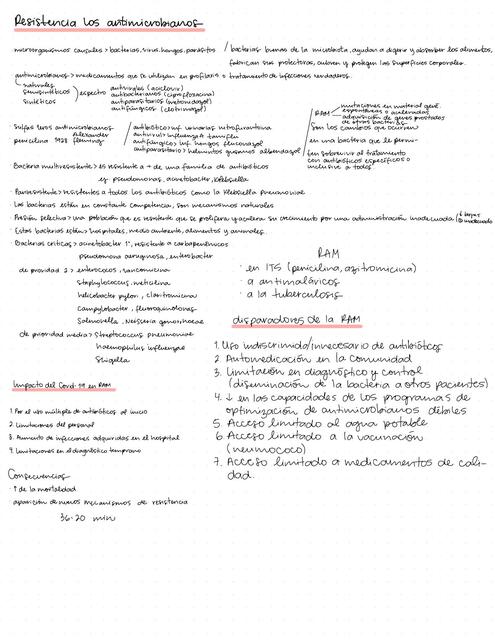 Resistencia los antimicrobianos
microorganismos causales > bacterias, virus, hongos, parasitos / bacterias buenas de la microbiota, ayudan a digerir y absorber los alimentos,
fabrican sus protectoras, cubren y protegen las superficies corporales.
antimicrobianos > medicamentos que se utilizan en profilaxis o tratamiento de infecciones verdaderas.
naturales
semisintéticos
sintéticos
espectro
antivirales (aciclovir)
antibacterianos (ciprofloxacina)
antiparasitarios (metronidazol)
antifúngicos (clotrimazol)
RAM
mutaciones en material gené.
espontáneas o aceleradas
adquisición de genes prestados
de otras bacterias
son los cambios que ocurren
en una bacteria que le permi-
ten sobrevivir al tratamiento
con antibióticos específicos o
inclusive a todos
Sulfas 1eros antimicrobianos
penicilina 1928 Alexander Fleming
antibiótico > inf. urinarias nitrofurantoina
antiviral > influenza tamiflu
antifúngico > inf. hongos fluconazol
antiparasitario > helmintos gusanos albendazol
Bacteria multiresistente > es resistente a + de una familia de antibióticos
ej. pseudomonas, acinetobacter, Klebsiella
· Panresistente > resistentes a todos los antibióticos como la Klebsiella Pneumoniae
· Las bacterias están en constante competencia, son mecanismos naturales
Presión selectiva > una población que es resistente que se prolifera y acelera su crecimiento por una administración inadecuada
· Estas bacterias están > hospitales, medio ambiente, alimentos y animales.
· Bacterias críticas > acinetobacter 1°, resistente a carbapenémicos
pseudomona aeruginosa, enterobacter
de prioridad 2 > enterococos, vancomicina
Staphylococcus, meticilina
helicobacter pylori, claritromicina
Campylobacter, fluoroquinolonas
Salmonella, Neisseria gonorrhoeae
de prioridad media > Streptococcus pneumoniae
haemophilus influenzae
Shigella
RAM
· en ITS (penicilina, azitromicina)
· a antimaláricos
· a la tuberculosis
disparadores de la RAM
1. Uso indiscrimido/innecesario de antibióticos
2. Automedicación en la comunidad
3. Limitación en diagnóstico y control
(diseminación de la bacteria a otros pacientes)
4. ↓ en las capacidades de los programas de
optimización de antimicrobianos débiles
5. Acceso limitado al agua potable
6. Acceso limitado a la vacunación
(neumococo)
7. Acceso limitado a medicamentos de cali-
dad.
Impacto del Covid-19 en RAM
1. Por el uso múltiple de antibióticos al inicio
2. Limitaciones del personal
3. Aumento de infecciones adquiridas en el hospital
4. Limitaciones en el diagnóstico temprano
Consecuencias
· ↑ de la mortalidad
aparición de nuevos mecanismos de resistencia
36:20 min